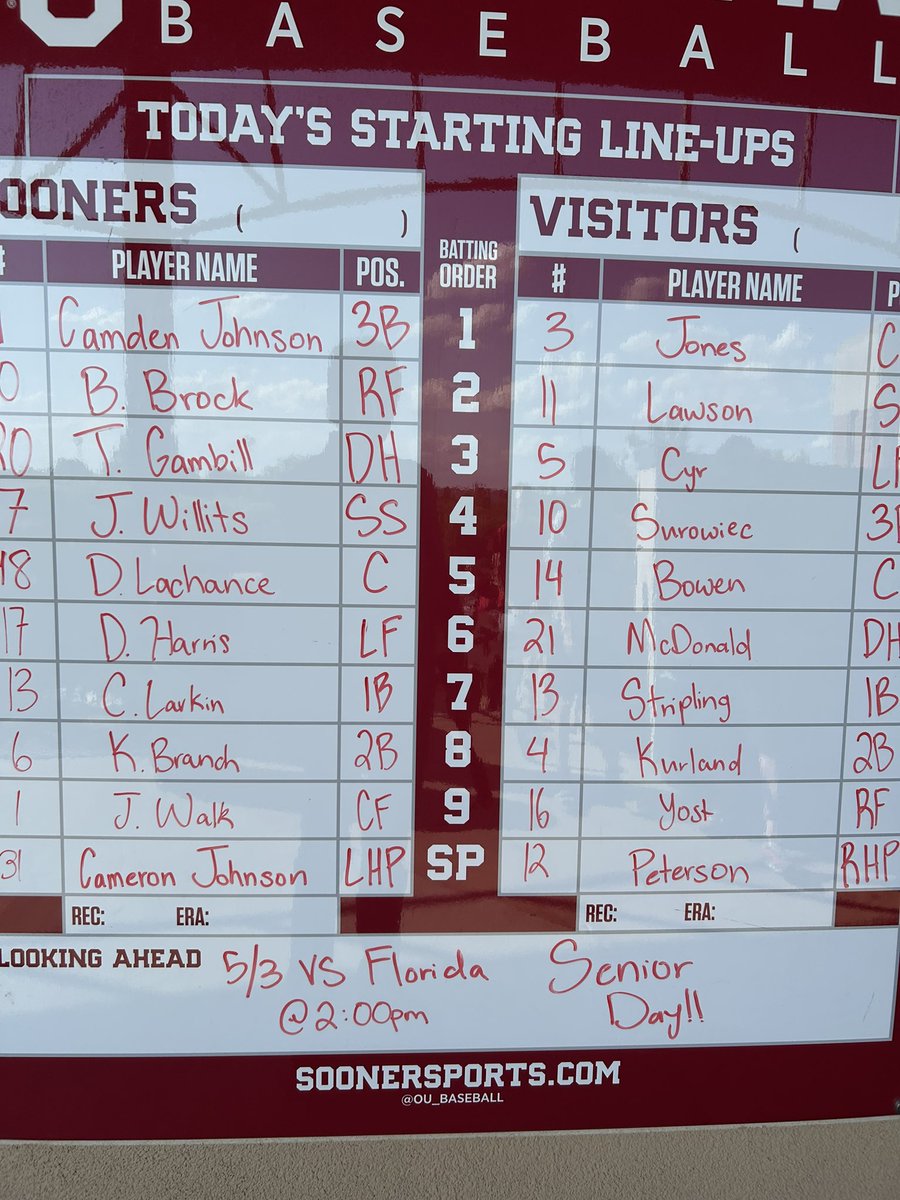 BASEBALL
TODAY'S STARTING LINE-UPS
OONERS ( ) VISITORS (
# PLAYER NAME POS. BATTING ORDER # PLAYER NAME P
Camden Johnson 3B 1 3 Jones C
0 B. Brock RF 2 11 Lawson S
20 T. Gambill DH 3 5 Cyr
7 J. Willits SS 4 10 Surowiec 3B
48 D. Lachance C 5 14 Bowen C
17 D. Harris LF 6 21 McDonald DH
13 C. Larkin 1B 7 13 Stripling 1B
6 K. Branch 2B 8 4 Kurland 2B
1 J. Walk CF 9 16 Yost RF
31 Cameron Johnson LHP SP 12 Peterson RHP
REC: ERA: REC: ERA:
LOOKING AHEAD 5/3 vs Florida Senior
@2:00pm Day!!
SOONERSPORTS.COM
@OU_BASEBALL